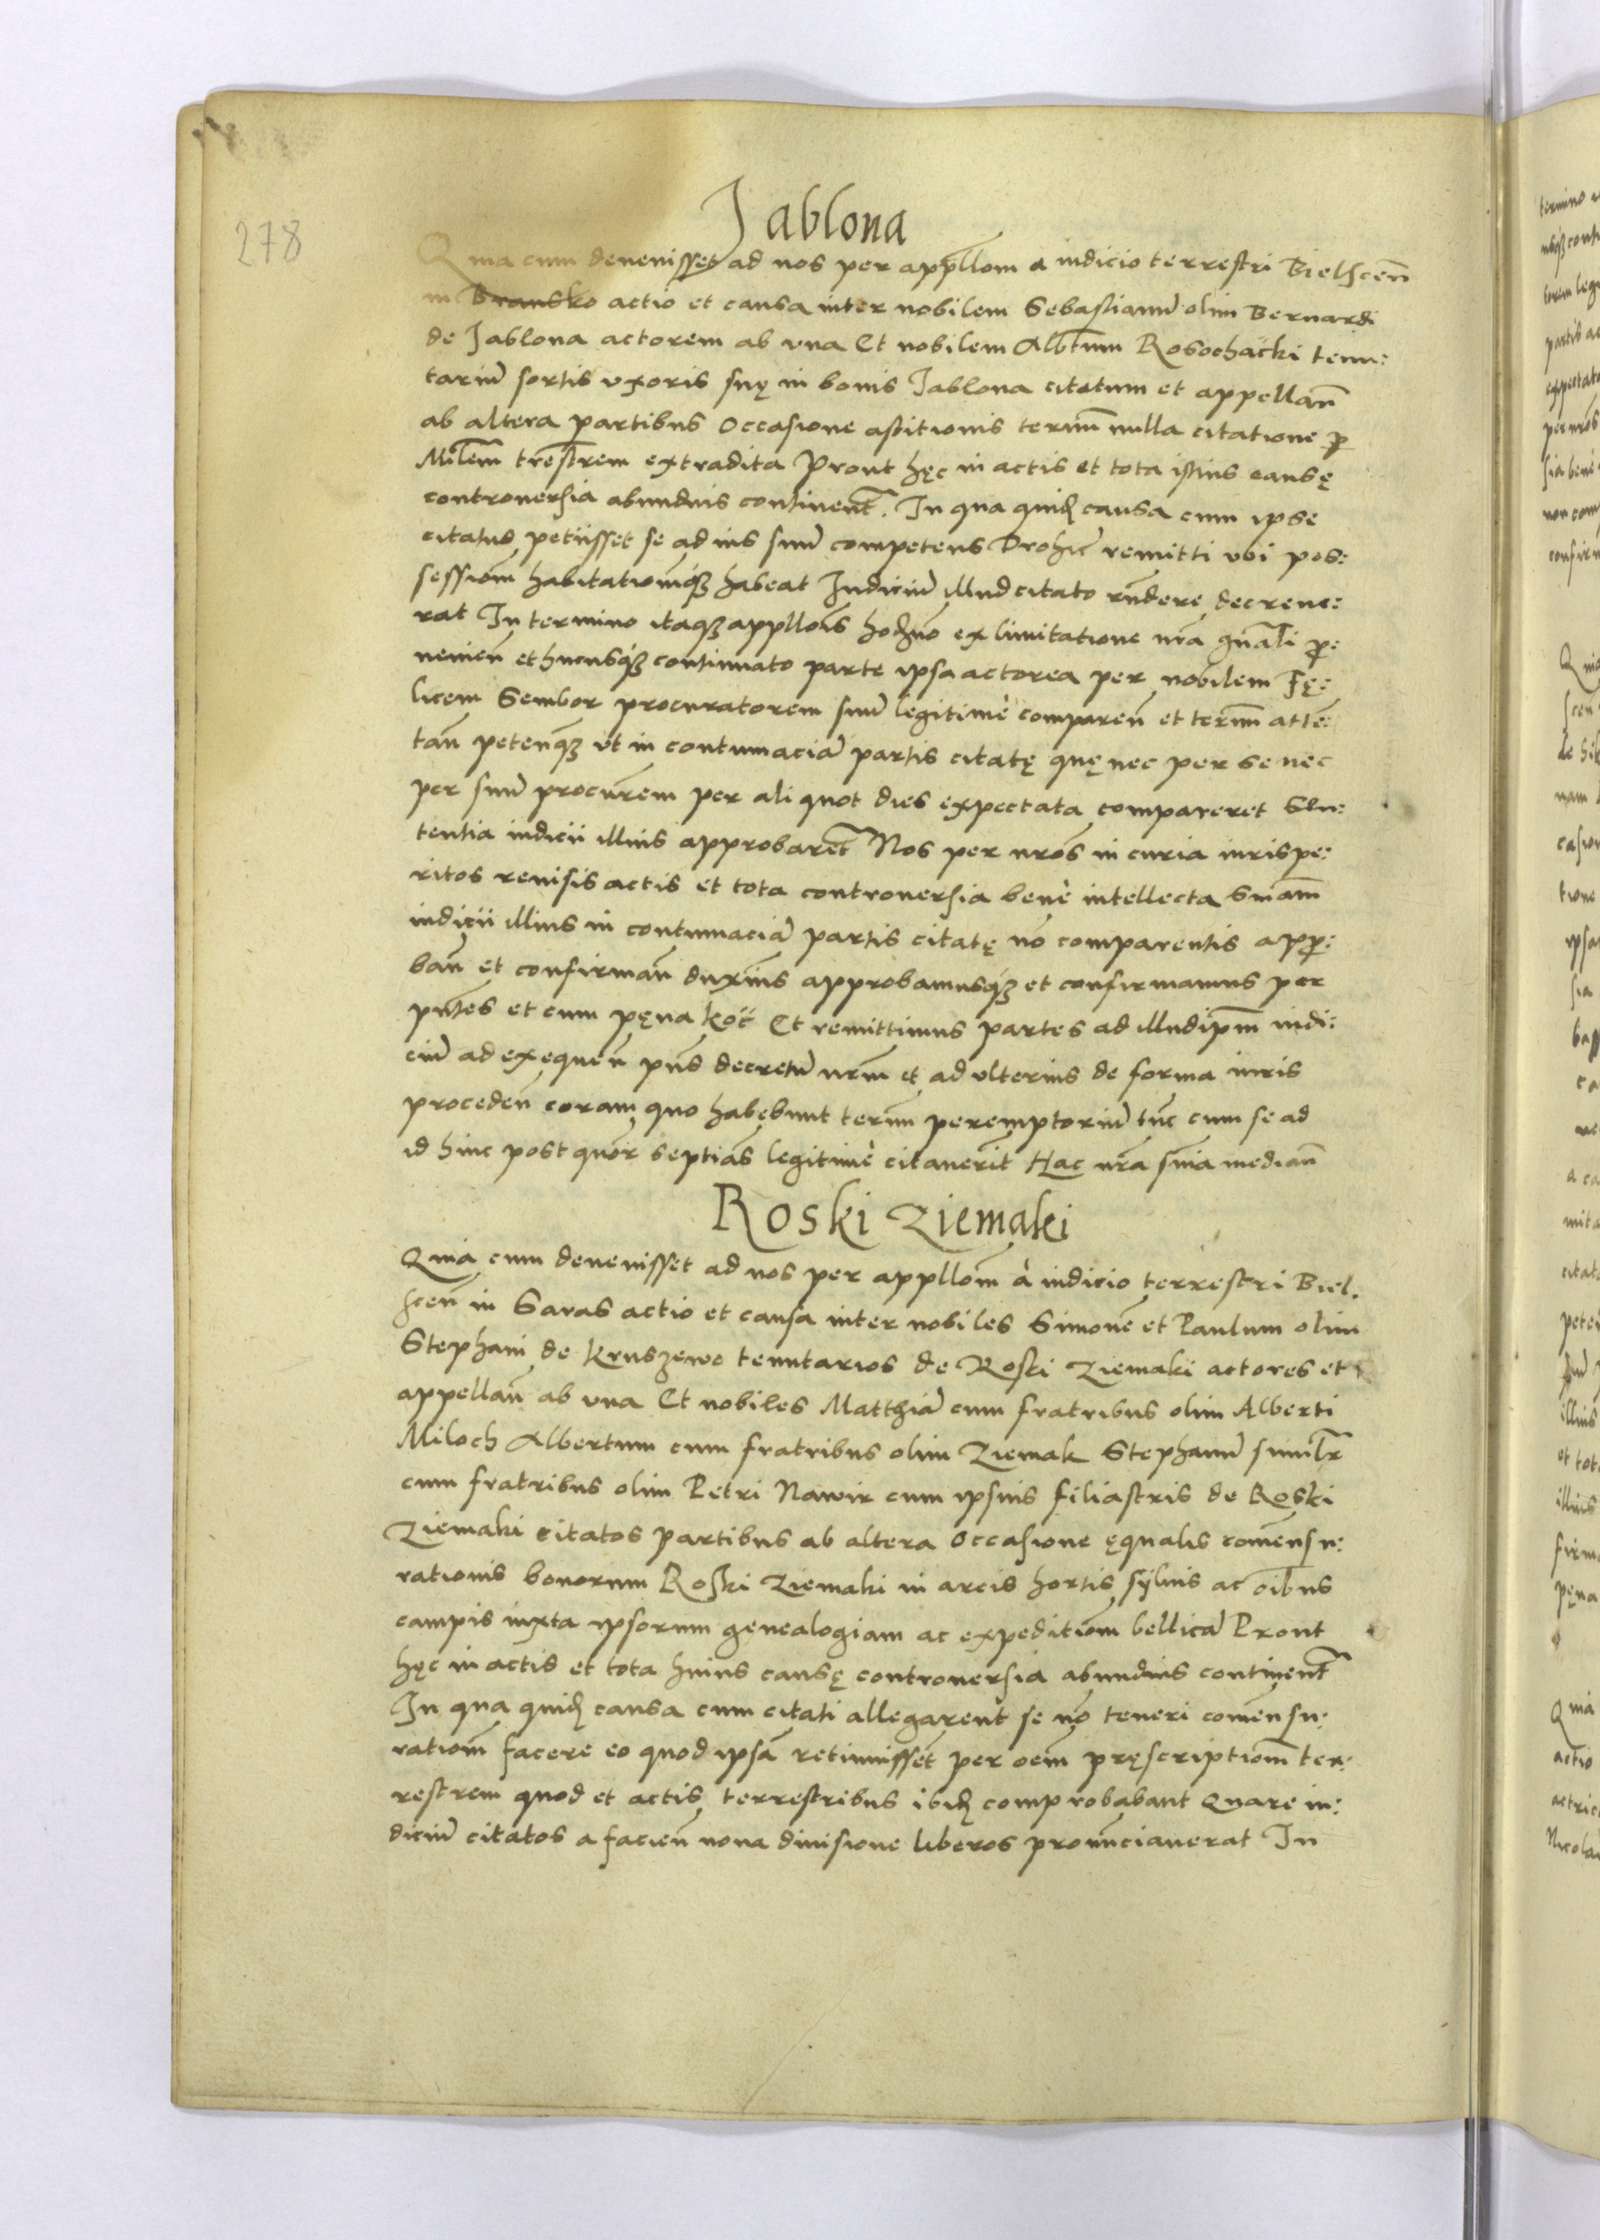 278
Jablona
Quia cum devenisset ad nos per appllom a iudicio terrestri Bielscen̄
in Bransko actio et causa inter nobilem Sebastianū olim Bernardi
de Jablona actorem ab vna Et nobilem Albtum Rosochaczki tenu:
tariū sortis vxoris suę in bonis Jablona citatum et appellan̄
ab altera partibus Occasione astitionis termī nulla citatione p
Milem trestrem extradita Prout hęc in actis et tota istius causę
controuersia abundius continent̄. In qua quid causa cum ipse
citatus petiisset se ad ius suū competens Drohic̄ remitti vbi pos:
sessiom̄ habitatiomq3 habeat Iudiciū illud citato rn̄dere decreue:
rat In termino itaq3 apllois hodno ex limitatione nr̄a gn̄ali p:
uenien̄ et hucusq3 continuato parte ipsa actorea per nobilem Fę:
licem Sembor procuratorem suū legitime comparen̄ et termī atte:
tan̄ petenq3 vt in contumaciā partis citatę quę nec per se nec
per suū procurem̄ per ali quot dies expectata compareret Sen:
tentia iudicii illius approbaret̄ Nos per nr̄os in curia iurispe:
ritos reuisis actis et tota controuersia bene intellecta Sniam̄
iudicii illius in contumaciā partis citatę nō comparentis app:
ban̄ et confirman̄ duximus approbamusq3 et confirmamus per
pn̄tes et cum pęna koc̄ Et remittimus partes ad illudipm̄ iudi:
ciū ad exequen̄ pn̄s decretū nr̄m et ad vlterius de forma iuris
proceden̄ coram quo habębunt termī peremptoriū tūc cum se ad
id hinc post quor septias̄ legitime citauerit̄ Hac nr̄a sn̄ia median̄
Roski Ziemaki
Quia cum devenisset ad nos per appllom̄ à iudicio terrestri Biel.
scen̄ in Saras actio et causa inter nobiles Simonē et Paulum olim
Stephani de Kruszewo tenutarios de Roski Ziemaki actores et
appellan̄ ab vna Et nobiles Matthiā cum fratribus olim Alberti
Miloch Albertum cum fratribus olim Ziemak Stephanū similr̄
cum fratribus olim Petri Nawir cum ipsius filiastris de Roski
Ziemaki citatos partibus ab altera Occasione ęqualis comensu:
rationis bonorum Roski Ziemaki in areis hortis syluis ac oībus
campis iuxta ipsorum genealogiam ac expeditiom̄ bellicā Prout
hęc in actis et tota huius causę controuersia abundius continent̄
In qua quid causa cum citati allegarent se nō teneri comensu:
ratiom̄ facere eo quod ipsā retinuissēt per oem̄ pręscriptiom̄ ter:
restrem quod et actis terrestribus ibid comprobabant Quare iu:
diciū citatos a facien̄ noua diuisione liberos pronunciauerat In